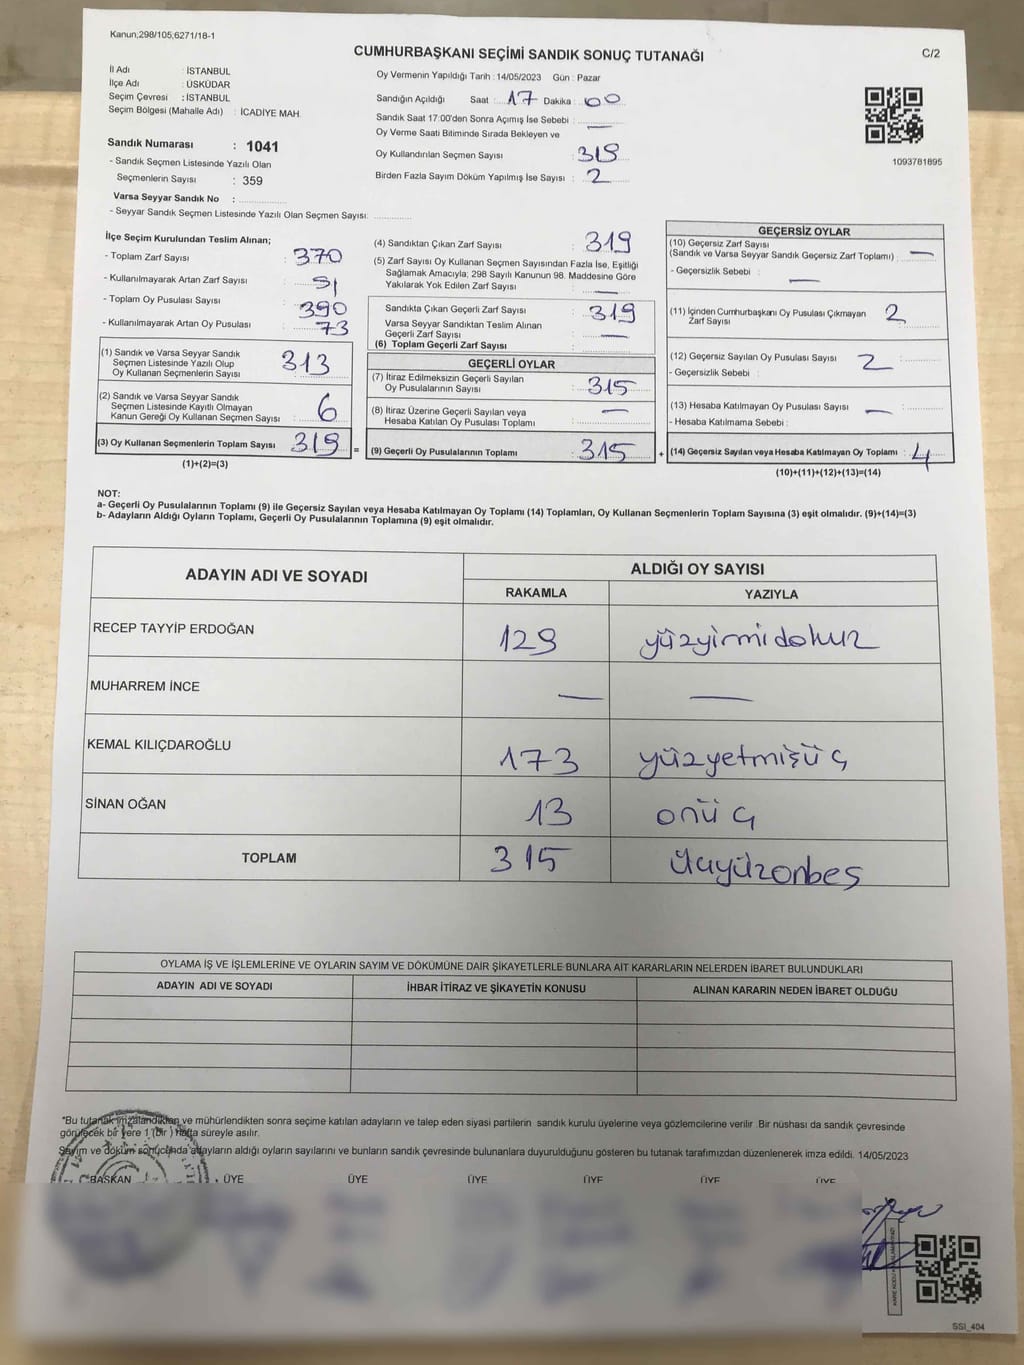 Kanun,298/105,6271/18-1
CUMHURBAŞKANI SEÇİMİ SANDIK SONUÇ TUTANAĞI
C/2
İl Adı : İSTANBUL
İlçe Adı : ÜSKÜDAR
Seçim Çevresi : İSTANBUL
Seçim Bölgesi (Mahalle Adı) : İCADİYE MAH.
Sandık Numarası : 1041
- Sandık Seçmen Listesinde Yazılı Olan
Seçmenlerin Sayısı : 359
Varsa Seyyar Sandık No :
- Seyyar Sandık Seçmen Listesinde Yazılı Olan Seçmen Sayısı:
Oy Vermenin Yapıldığı Tarih : 14/05/2023 Gün : Pazar
Sandığın Açıldığı Saat : 17 Dakika : 00
Sandık Saat 17:00'den Sonra Açımış İse Sebebi : —
Oy Verme Saati Bitiminde Sırada Bekleyen ve
Oy Kullandırılan Seçmen Sayısı : 319
Birden Fazla Sayım Döküm Yapılmış İse Sayısı : 2
1093781895
İlçe Seçim Kurulundan Teslim Alınan;
- Toplam Zarf Sayısı : 370
- Kullanılmayarak Artan Zarf Sayısı : 51
- Toplam Oy Pusulası Sayısı : 390
- Kullanılmayarak Artan Oy Pusulası : 73
(1) Sandık ve Varsa Seyyar Sandık
Seçmen Listesinde Yazılı Olup
Oy Kullanan Seçmenlerin Sayısı : 313
(2) Sandık ve Varsa Seyyar Sandık
Seçmen Listesinde Kayıtlı Olmayan
Kanun Gereği Oy Kullanan Seçmen Sayısı : 6
(3) Oy Kullanan Seçmenlerin Toplam Sayısı : 319
(1)+(2)=(3)
(4) Sandıktan Çıkan Zarf Sayısı : 319
(5) Zarf Sayısı Oy Kullanan Seçmen Sayısından Fazla İse, Eşitliği
Sağlamak Amacıyla; 298 Sayılı Kanunun 98. Maddesine Göre
Yakılarak Yok Edilen Zarf Sayısı : —
Sandıkta Çıkan Geçerli Zarf Sayısı : 319
Varsa Seyyar Sandıktan Teslim Alınan
Geçerli Zarf Sayısı : —
(6) Toplam Geçerli Zarf Sayısı :
GEÇERLİ OYLAR
(7) İtiraz Edilmeksizin Geçerli Sayılan
Oy Pusulalarının Sayısı : 315
(8) İtiraz Üzerine Geçerli Sayılan veya
Hesaba Katılan Oy Pusulası Toplamı : —
= (9) Geçerli Oy Pusulalarının Toplamı : 315
GEÇERSİZ OYLAR
(10) Geçersiz Zarf Sayısı
(Sandık ve Varsa Seyyar Sandık Geçersiz Zarf Toplamı) : —
- Geçersizlik Sebebi : —
(11) İçinden Cumhurbaşkanı Oy Pusulası Çıkmayan
Zarf Sayısı : 2
(12) Geçersiz Sayılan Oy Pusulası Sayısı : 2
- Geçersizlik Sebebi :
(13) Hesaba Katılmayan Oy Pusulası Sayısı : —
- Hesaba Katılmama Sebebi :
+ (14) Geçersiz Sayılan veya Hesaba Katılmayan Oy Toplamı : 4
(10)+(11)+(12)+(13)=(14)
NOT:
a- Geçerli Oy Pusulalarının Toplamı (9) ile Geçersiz Sayılan veya Hesaba Katılmayan Oy Toplamı (14) Toplamları, Oy Kullanan Seçmenlerin Toplam Sayısına (3) eşit olmalıdır. (9)+(14)=(3)
b- Adayların Aldığı Oyların Toplamı, Geçerli Oy Pusulalarının Toplamına (9) eşit olmalıdır.
ADAYIN ADI VE SOYADI
ALDIĞI OY SAYISI
RAKAMLA YAZIYLA
RECEP TAYYİP ERDOĞAN 129 yüzyirmidokuz
MUHARREM İNCE — —
KEMAL KILIÇDAROĞLU 173 yüzyetmişüç
SİNAN OĞAN 13 onüç
TOPLAM 315 üçyüzonbeş
OYLAMA İŞ VE İŞLEMLERİNE VE OYLARIN SAYIM VE DÖKÜMÜNE DAİR ŞİKAYETLERLE BUNLARA AİT KARARLARIN NELERDEN İBARET BULUNDUKLARI
ADAYIN ADI VE SOYADI İHBAR İTİRAZ VE ŞİKAYETİN KONUSU ALINAN KARARIN NEDEN İBARET OLDUĞU
*Bu tutanak imzalandıktan ve mühürlendikten sonra seçime katılan adayların ve talep eden siyasi partilerin sandık kurulu üyelerine veya gözlemcilerine verilir. Bir nüshası da sandık çevresinde
görülecek bir yere 1 (bir) hafta süreyle asılır.
Sayım ve döküm sonucunda adayların aldığı oyların sayılarını ve bunların sandık çevresinde bulunanlara duyurulduğunu gösteren bu tutanak tarafımızdan düzenlenerek imza edildi. 14/05/2023
BAŞKAN ÜYE ÜYE ÜYE ÜYE ÜYE ÜYE
SSI_404